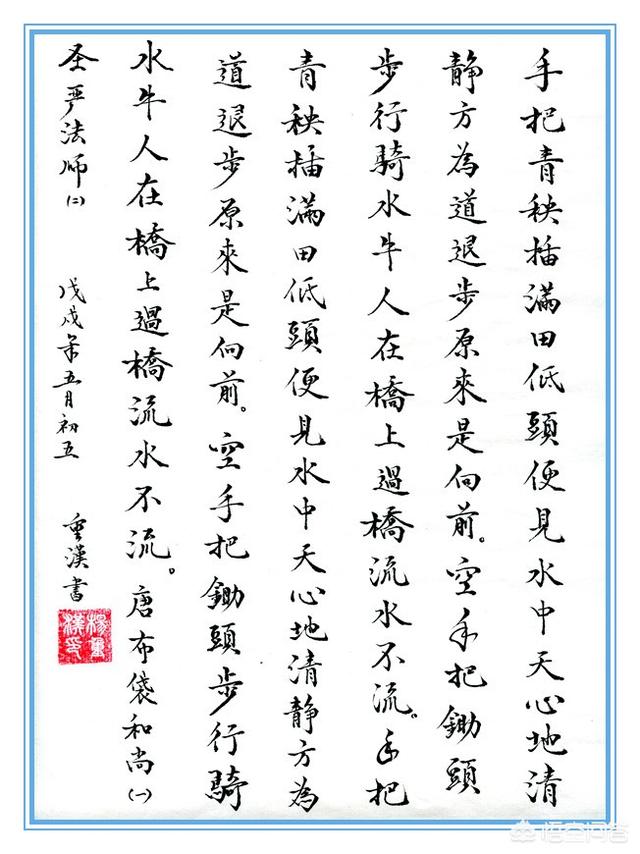 手把青秧插滿田低頭便見水中天心地清
静方為道退步原來是向前。空手把鋤頭
步行騎水牛人在橋上過橋流水不流。手把
青秧插滿田低頭便見水中天心地清静方為
道退步原來是向前。空手把鋤頭步行騎
水牛人在橋上過橋流水不流。唐布袋和尚(一)
圣严法师(二) 戊戌年五月初五 重漢書
楊重漢印
悟空问答